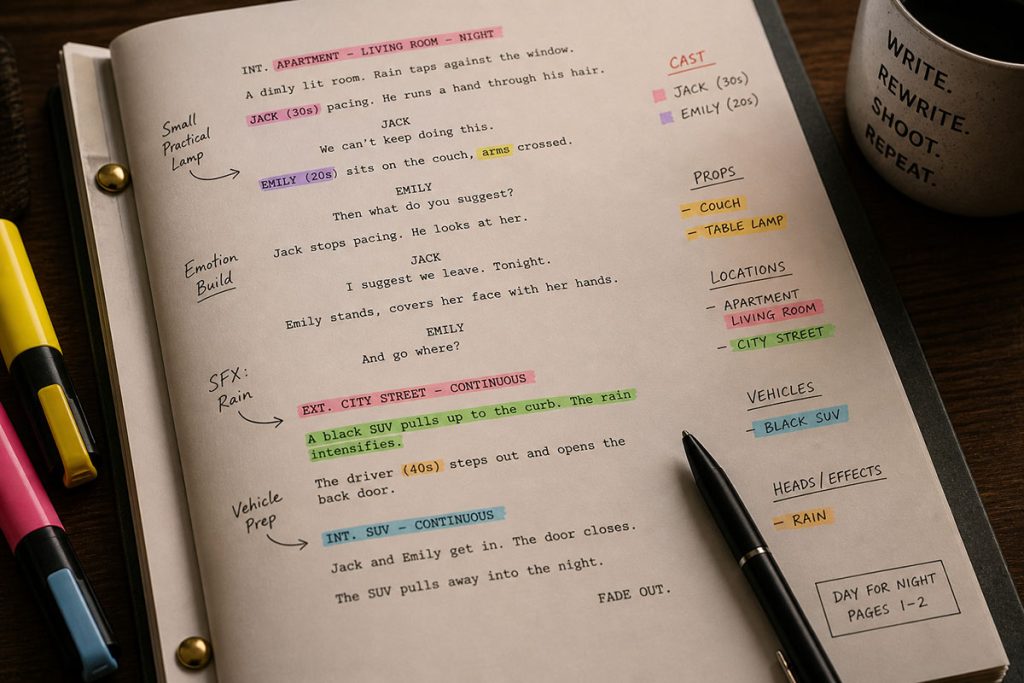 INT. APARTMENT – LIVING ROOM – NIGHT
A dimly lit room. Rain taps against the window.
JACK (30s) pacing. He runs a hand through his hair.
JACK
We can't keep doing this.
EMILY (20s) sits on the couch, arms crossed.
EMILY
Then what do you suggest?
Jack stops pacing. He looks at her.
JACK
I suggest we leave. Tonight.
Emily stands, covers her face with her hands.
EMILY
And go where?
EXT. CITY STREET – CONTINUOUS
A black SUV pulls up to the curb. The rain
intensifies.
The driver (40s) steps out and opens the
back door.
INT. SUV – CONTINUOUS
Jack and Emily get in. The door closes.
The SUV pulls away into the night.
FADE OUT.
Small
Practical
Lamp
Emotion
Build
SFX:
Rain
Vehicle
Prep
CAST
JACK (30s)
EMILY (20s)
PROPS
– COUCH
– TABLE LAMP
LOCATIONS
– APARTMENT
LIVING ROOM
– CITY STREET
VEHICLES
– BLACK SUV
HEADS/EFFECTS
– RAIN
DAY FOR NIGHT
PAGES 1–2
WRITE.
REWRITE.
SHOOT.
REPEAT.